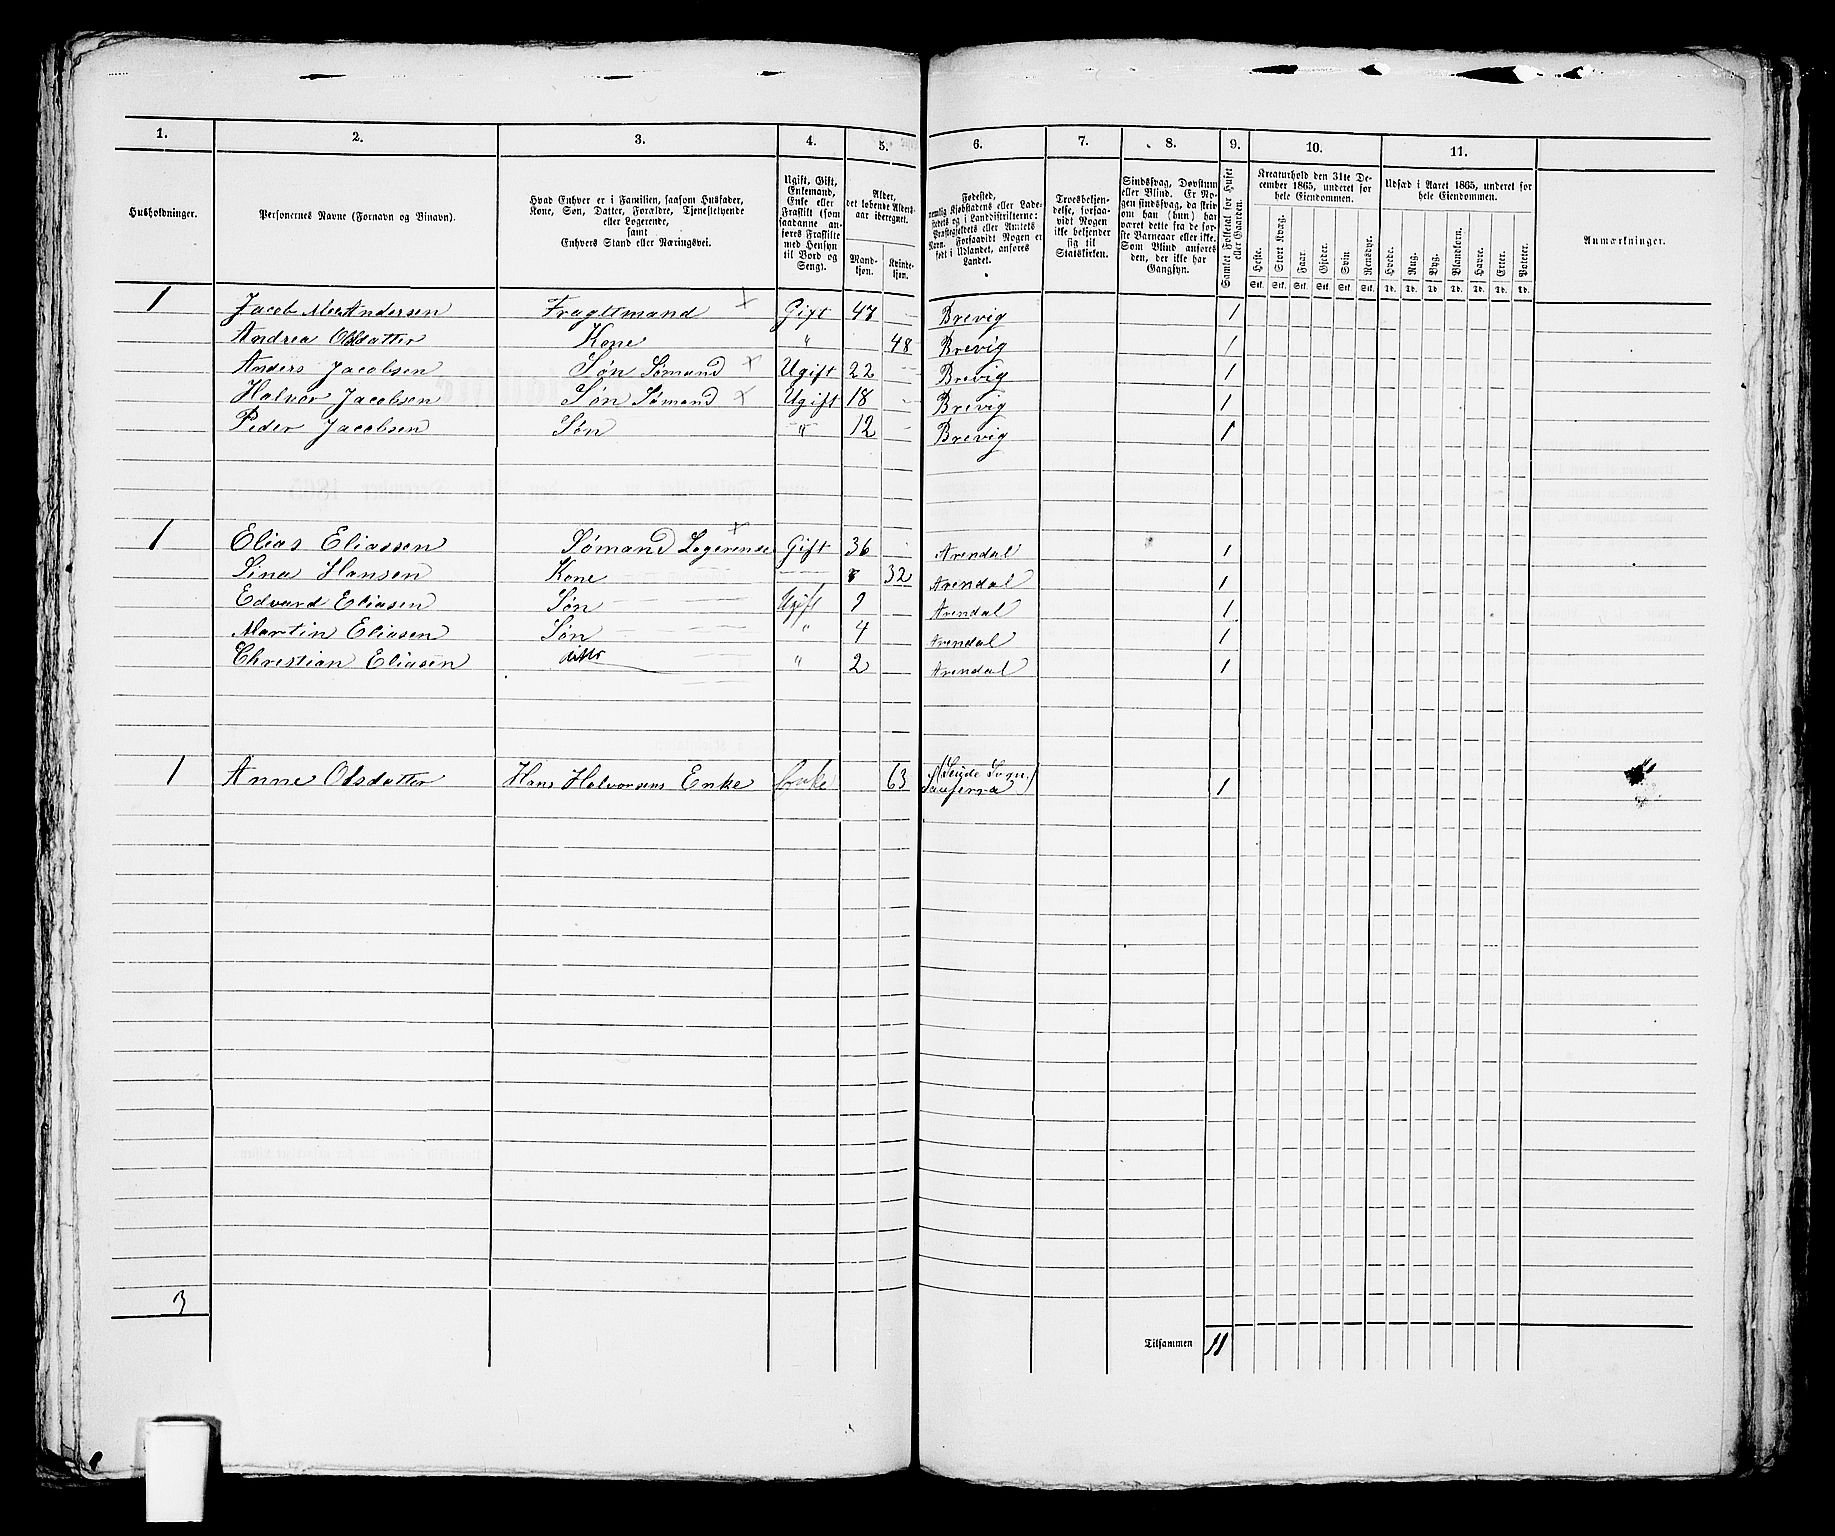 1. 2. 3. 4. 5. 6. 7. 8. 9. 10. 11.
Husholdninger.
Personernes Navne (Fornavn og Binavn).
Hvad Enhver er i Familien, saasom Husfader,
Kone, Søn, Datter, Forældre, Tjenestetyende
eller Logerende,
samt
Enhvers Stand eller Næringsvei.
Ugift, Gift,
Enkemand,
Enke eller
Fraskilt (som
saadanne an-
føres Fraskilte
med Hensyn
til Bord og
Seng).
Alder,
det løbende Alders-
aar iberegnet.
Mand-
kjøn.
Kvinde-
kjøn.
Fødested,
nemlig Kjøbstadens eller Lade-
stedets og i Landdistrikterne:
Præstegjeldets eller Amtets
Navn. Forsaavidt Nogen er
født i Udlandet, anføres
Landet.
Troesbekjen-
delse, forsaa-
vidt Nogen
ikke bekjender
sig til
Statskirken.
Sindssvag, Døvstum
eller Blind. Er No-
gen sindssvag, da skriv
om han (hun) har
været dette fra de før-
ste Barneaar eller ikke.
Som Blind anføres
den, der ikke har
Gangsyn.
Samlet Folketal for Huset
eller Gaarden.
Kreaturhold den 31te De-
cember 1865, underet for
hele Eiendommen.
Heste. Stort Kvæg. Faar. Gjeder. Svin Rensdyr.
Stk. Stk. Stk. Stk. Stk. Stk.
Udsæd i Aaret 1865, underet for
hele Eiendommen.
Hvede. Rug. Byg. Blandkorn. Havre. Erter. Poteter.
Td. Td. Td Td. Td. Td. Td.
Anmærkninger.
1 Jacob Andersen Fragtmand × Gift 47 Brevig 1
Andrea Olsdatter Kone " 48 Brevig 1
Anders Jacobsen Søn Sømand × Ugift 22 Brevig 1
Halvor Jacobsen Søn Sømand × Ugift 18 Brevig 1
Peder Jacobsen Søn " 12 Brevig 1
1 Elias Eliassen Sømand Logerense × Gift 36 Arendal 1
Lina Hansen Kone 32 Arendal 1
Edvard Eliasen Søn Ugift 9 Arendal 1
Martin Eliasen Søn " 4 Arendal 1
Christian Eliasen ditto " 2 Arendal 1
1 Anne Olsdatter Hans Halvorsens Enke Enke 63 1
3
Tilsammen 11